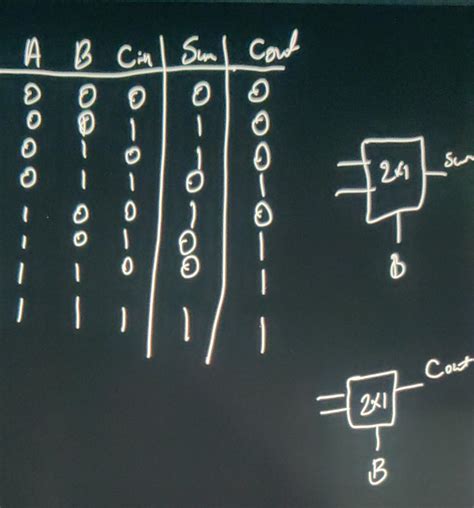 A B Cin Sum Cout
0 0 0 0 0
0 0 1 1 0
0 1 0 1 0
0 1 1 0 1
1 0 0 1 0
1 0 1 0 1
1 1 0 0 1
1 1 1 1 1
2x1 Sum
B
2x1 Cout
B